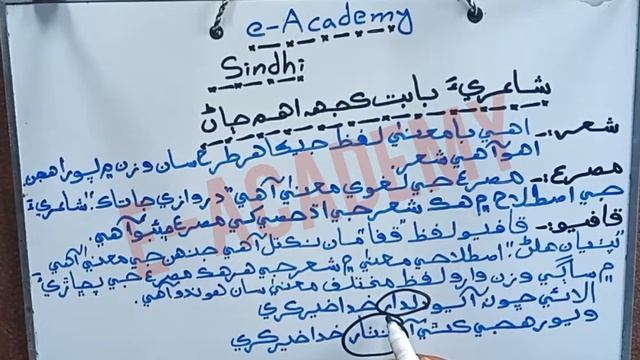 e-Academy
Sindhi
شاعريءَ بابت ڪجهہ اهم ڄاڻ
شعر:- اهي بامعنيٰ لفظ جيڪا هر طرح سان وزن ۾ پورا هجن
اهو آهي شعر.
مصرع:- مصرع جي لغوي معنيٰ آهي "دروازي جا تاڪ" شاعريءَ
جي اصطلاح ۾ هڪ شعر جي اڌ حصي کي مصرع چئبو آهي.
قافيو:- قافيو لفظ "قفا" مان نڪتل آهي جنهن جي معنيٰ آهي
"پٺيان هلڻ" اصطلاحي معنيٰ ۾ شعر جي هر هڪ مصرع جي پڇاڙيءَ
۾ ساڳي وزن وارو لفظ مختلف معنيٰ سان هوندو آهي.
الائي جو نہ آيو دلدار خدا خير ڪري
ويو رهجي ڪٿي آ خدا خير ڪري
E-ACADEMY